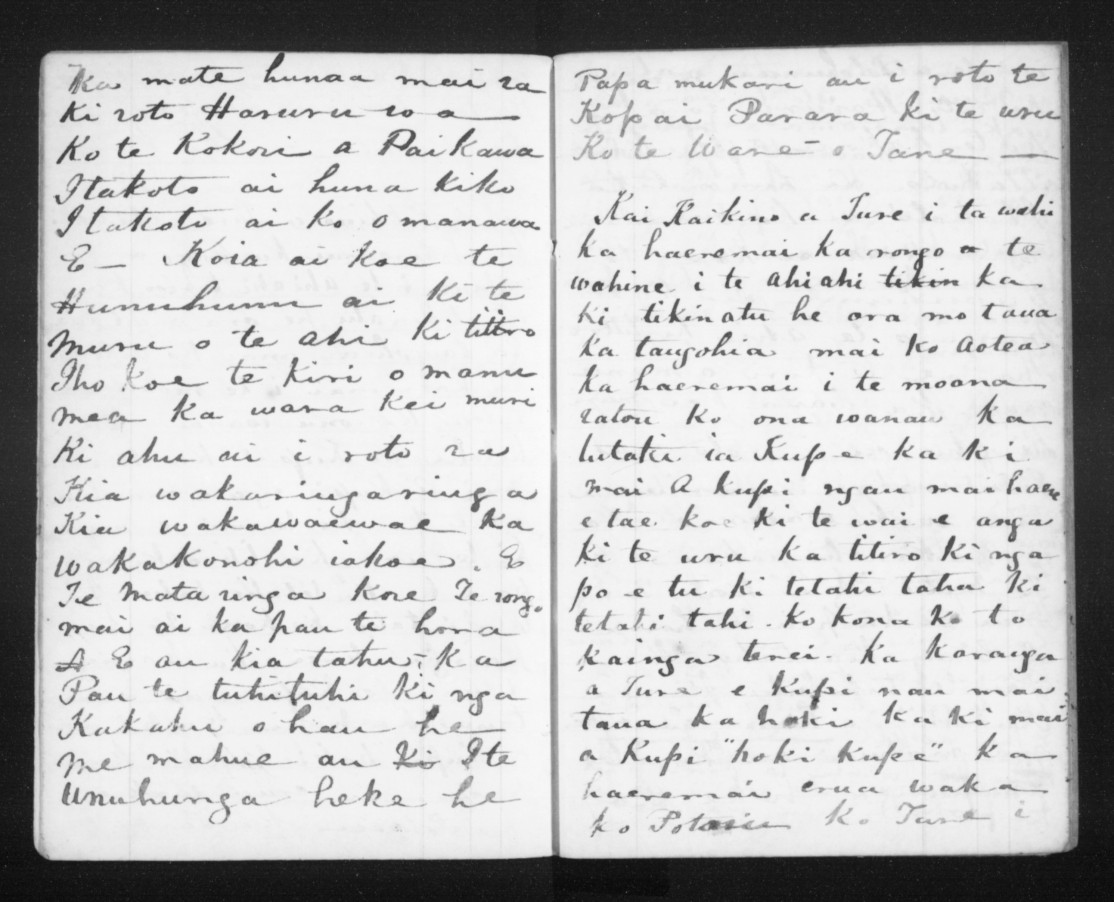 Ka mate hunaa mai ra
Ki roto Haruru roa
Ko te Kokori a Paikawa
I takoto ai huna kiko
I takoto ai ko o manawa
E — Koia ai koe te
Hunuhunu ai ki te
muru o te ahi ki titiro
Iho koe te kiri o manu
mea ka wara kei muri
Ki ahu ai i roto ra
Kia wakaringaringa
Kia wakawaewae ka
wakakonohi iakoe. E
Te mata ringa kore Te rongo
mai ai ka pau te hora
E au kia tahu - Ka
Pau te tuhituhi ki nga
Kakahu o hau he
me mahue au Ko I te
Unuhunga heke he
Papa mukari au i roto te
Kopai Parara ki te uru
Ko te Wane - o Tane —
Kai Kaikino a Ture i ta wahi
ka haeremai ka rongo te
wahine i te ahiahi tikin ka
ki tikinatu he ora mo taua
ka tangohia mai ko aotea
ka haeremai i te moana
ratou ko ona wanau ka
tutaki ia Kupe ka ki
mai a kupi ngau mai haere
e tae koe ki te wai e anga
ki te uru ka titiro ki nga
po e tu ki tetahi taha ki
tetahi tahi. ko kona ko to
kainga terei. Ka karanga
a Ture e kupi nau mai
taua ka hoki ka ki mai
a Kupi "hoki kupe" ka
haeremai erua waka
ko Ture i